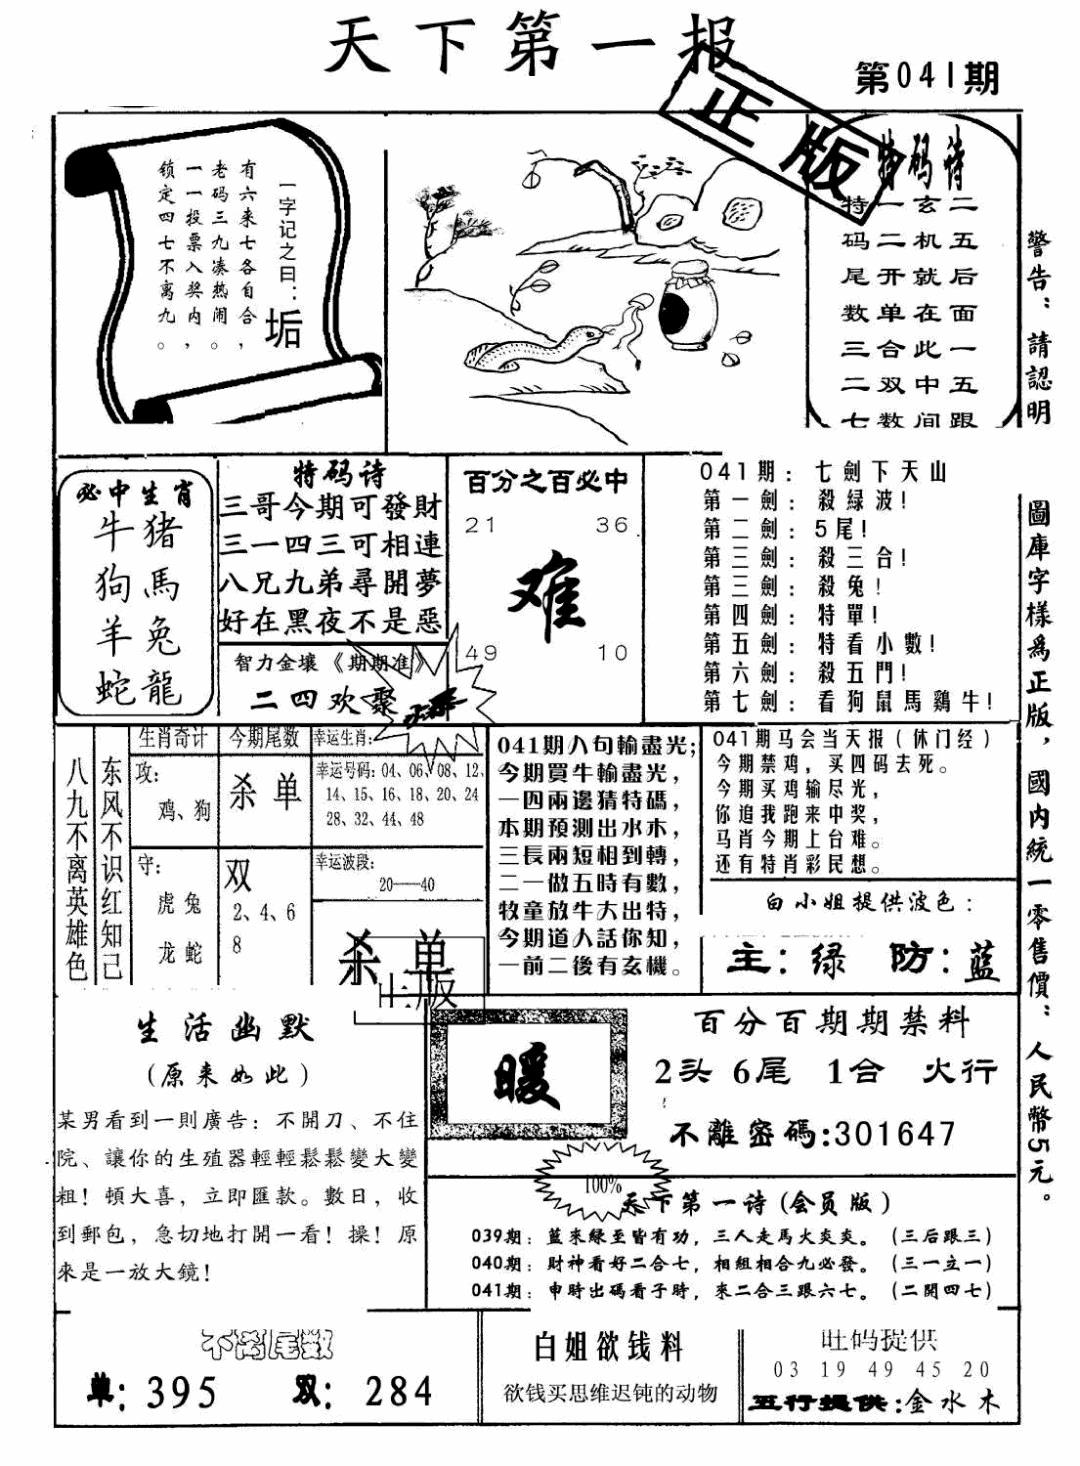 天下第一报
第041期
正版
一字记之曰：垢
有六来七各自合，
老码三九凑热闹。
一一投票入奖内，
锁定四七不离九。
特码诗
二五后面一五跟
玄机就在此中间
一二开单合双数
特码尾数三二七
警告：請認明
圖庫字樣爲正版，國内統一零售價：人民幣5元。
必中生肖
牛猪
狗馬
羊兔
蛇龍
特码诗
三哥今期可發財
三一四三可相連
八兄九弟尋開夢
好在黑夜不是惡
智力金壤《期期准》
二四欢聚
百分之百必中
21 36
难
49 10
041期：七劍下天山
第一劍：殺綠波！
第二劍：5尾！
第三劍：殺三合！
第三劍：殺兔！
第四劍：特單！
第五劍：特看小數！
第六劍：殺五門！
第七劍：看狗鼠馬鷄牛！
八九不离英雄色
东风不识红知己
生肖奇计
攻：
鸡、狗
守：
虎兔
龙蛇
今期尾数
杀单
双
2、4、6
8
幸运生肖：
幸运号码：04、06、08、12、
14、15、16、18、20、24
28、32、44、48
幸运波段：
20——40
杀单
正版
041期八句輸盡光；
今期買牛輸盡光，
一四兩邊猜特碼，
本期預測出水木，
三長兩短相到轉，
二一做五時有數，
牧童放牛大出特，
今期道人話你知，
一前二後有玄機。
041期马会当天报（休门经）
今期禁鸡，买四码去死。
今期买鸡输尽光，
你追我跑来中奖，
马肖今期上台难。
还有特肖彩民想。
白小姐提供波色：
主：绿 防：蓝
生活幽默
（原来如此）
某男看到一則廣告：不開刀、不住
院、讓你的生殖器輕輕鬆鬆變大變
粗！頓大喜，立即匯款。數日，收
到郵包，急切地打開一看！操！原
來是一放大鏡！
暖
百分百期期禁料
2头 6尾 1合 火行
不離密碼:301647
100%
天下第一诗(会员版)
039期：藍來綠至皆有功，三人走馬火炎炎。（三后跟三）
040期：財神看好二合七，相組相合九必發。（三一立一）
041期：申時出碼看子時，來二合三跟六七。（二開四七）
不离尾数
单：395 双：284
白姐欲钱料
欲钱买思维迟钝的动物
旺码提供
03 19 49 45 20
五行提供：金水木